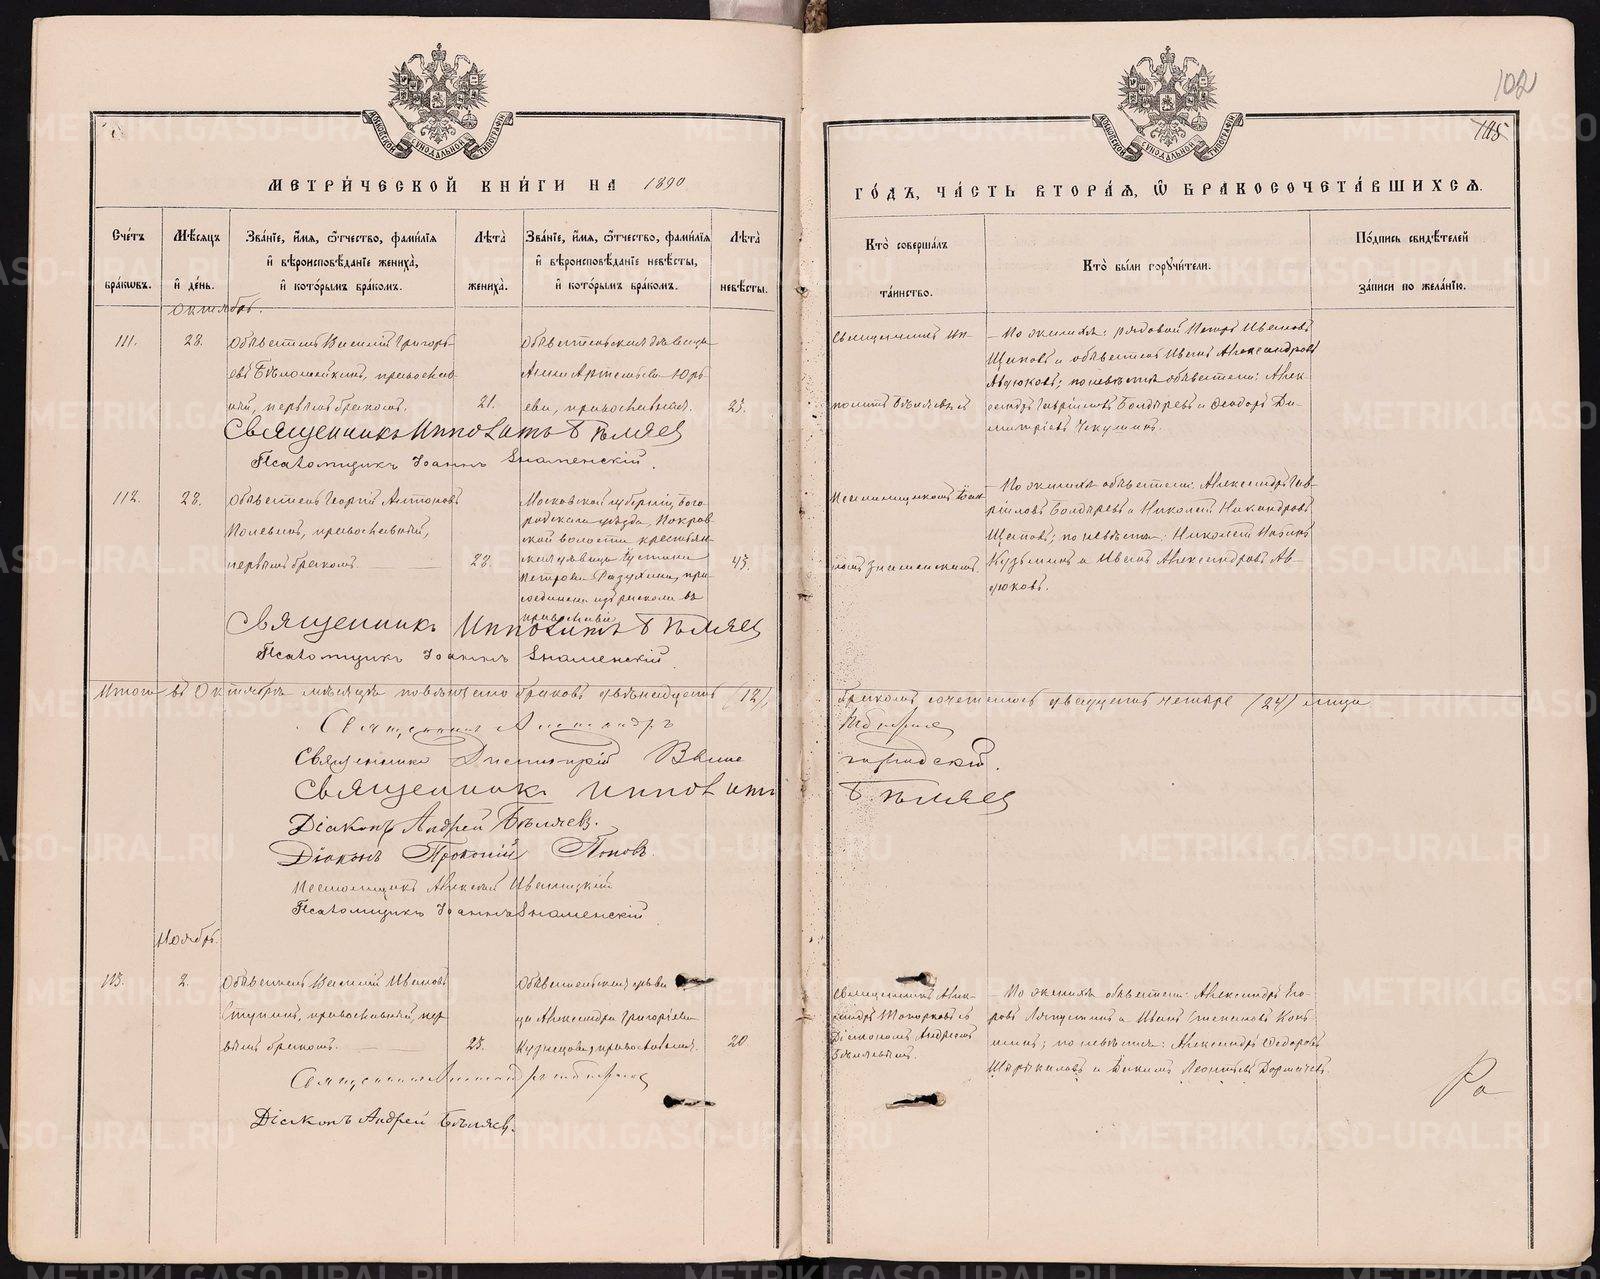 102
105
МОСКОВСКОЙ СѴНОДАЛЬНОЙ ТИПОГРАФІИ
МОСКОВСКОЙ СѴНОДАЛЬНОЙ ТИПОГРАФІИ
МЕТРИ́ЧЕСКОЙ КНИ́ГИ НА 1890
ГО́ДЪ, ЧА́СТЬ ВТОРА́Я, Ѿ БРАКОСОЧЕТА́ВШИХСЯ.
Сче́тъ бра́кωвъ.
Мѣ́сяцъ и҆ де́нь.
Зва́нїе, и҆́мя, ѻ҆́тчество, фамѝлїя и҆ вѣроисповѣ́данїе жениха̀, и҆ кото́рымъ бра́комъ.
Лѣ́та жениха̀.
Зва́нїе, и҆́мя, ѻ҆́тчество, фамѝлїя и҆ вѣроисповѣ́данїе невѣ́сты, и҆ кото́рымъ бра́комъ.
Лѣ́та невѣ́сты.
Кто̀ соверша́лъ та́инство.
Кто̀ бы́ли порꙋчи́тели.
По́дпись свидѣ́телей за́писи по жела́нїю.
Октябрь.
111.
28.
Обыватель Василій Григорь-
евъ Бѣломейкинъ, православ-
ный, первымъ бракомъ.
21.
Обывательская дѣвица
Анна Артемьева Юрь-
ева, православная.
25.
Священникъ Ип-
политъ Бѣляевъ
По женихѣ: рядовой Петръ Ивановъ
Щаповъ и обыватель Иванъ Александровъ
Авдюковъ; по невѣстѣ обыватели: Алек-
сандръ Гавріиловъ Болдыревъ и Ѳеодоръ Ди-
митріевъ Чекулинъ.
Священникъ Ипполитъ Бѣляев
Псаломщикъ Іоаннъ Знаменскій.
112.
28.
Обыватель Георгій Антоновъ
Полевинъ, православный,
первымъ бракомъ.
28.
Московской губерніи, Бого-
родскаго уѣзда, Покров-
ской волости крестьян-
ская дѣвица Устинья
Петрова Разухина, при-
соединена изъ раскола въ
православіе
Псаломщикомъ Іоан-
номъ Знаменскимъ.
По женихѣ обыватели: Александръ Гав-
ріиловъ Болдыревъ и Николай Никандровъ
Щаповъ; по невѣстѣ: Николай
Кузьминъ и Иванъ Александровъ Ав-
дюковъ.
Священникъ Ипполитъ Бѣляев
Псаломщикъ Іоаннъ Знаменскій.
Итого въ Октябрѣ мѣсяцѣ повѣнчано браковъ двѣнадцать (12),
бракомъ сочеталось двадцать четыре (24) лица
Священникъ Александръ
Священникъ Димитрій Выше
городскій.
Священникъ Ипполитъ
Бѣляев
Діаконъ Андрей Бѣляевъ.
Діаконъ Прокопій Поповъ.
Псаломщикъ Алексей Иваницкій
Псаломщикъ Іоаннъ Знаменскій
Ноябрь.
113.
2.
Обыватель Василій Ивановъ
Ступинъ, православный, пер-
вымъ бракомъ.
25.
Обывательская дѣви-
ца Александра Григоріева
Кузнецова, православная.
20.
Священникъ Алек-
сандръ Топорковъ съ
Діакономъ Андреемъ
Бѣляевымъ.
По женихѣ обыватели: Александръ Его-
ровъ Лапушинъ и Иванъ Степановъ Коп-
нинъ; по невѣстѣ: Александръ Ѳедоровъ
Шарыкаловъ и Іоакимъ Леонтьевъ
Діаконъ Андрей Бѣляев.